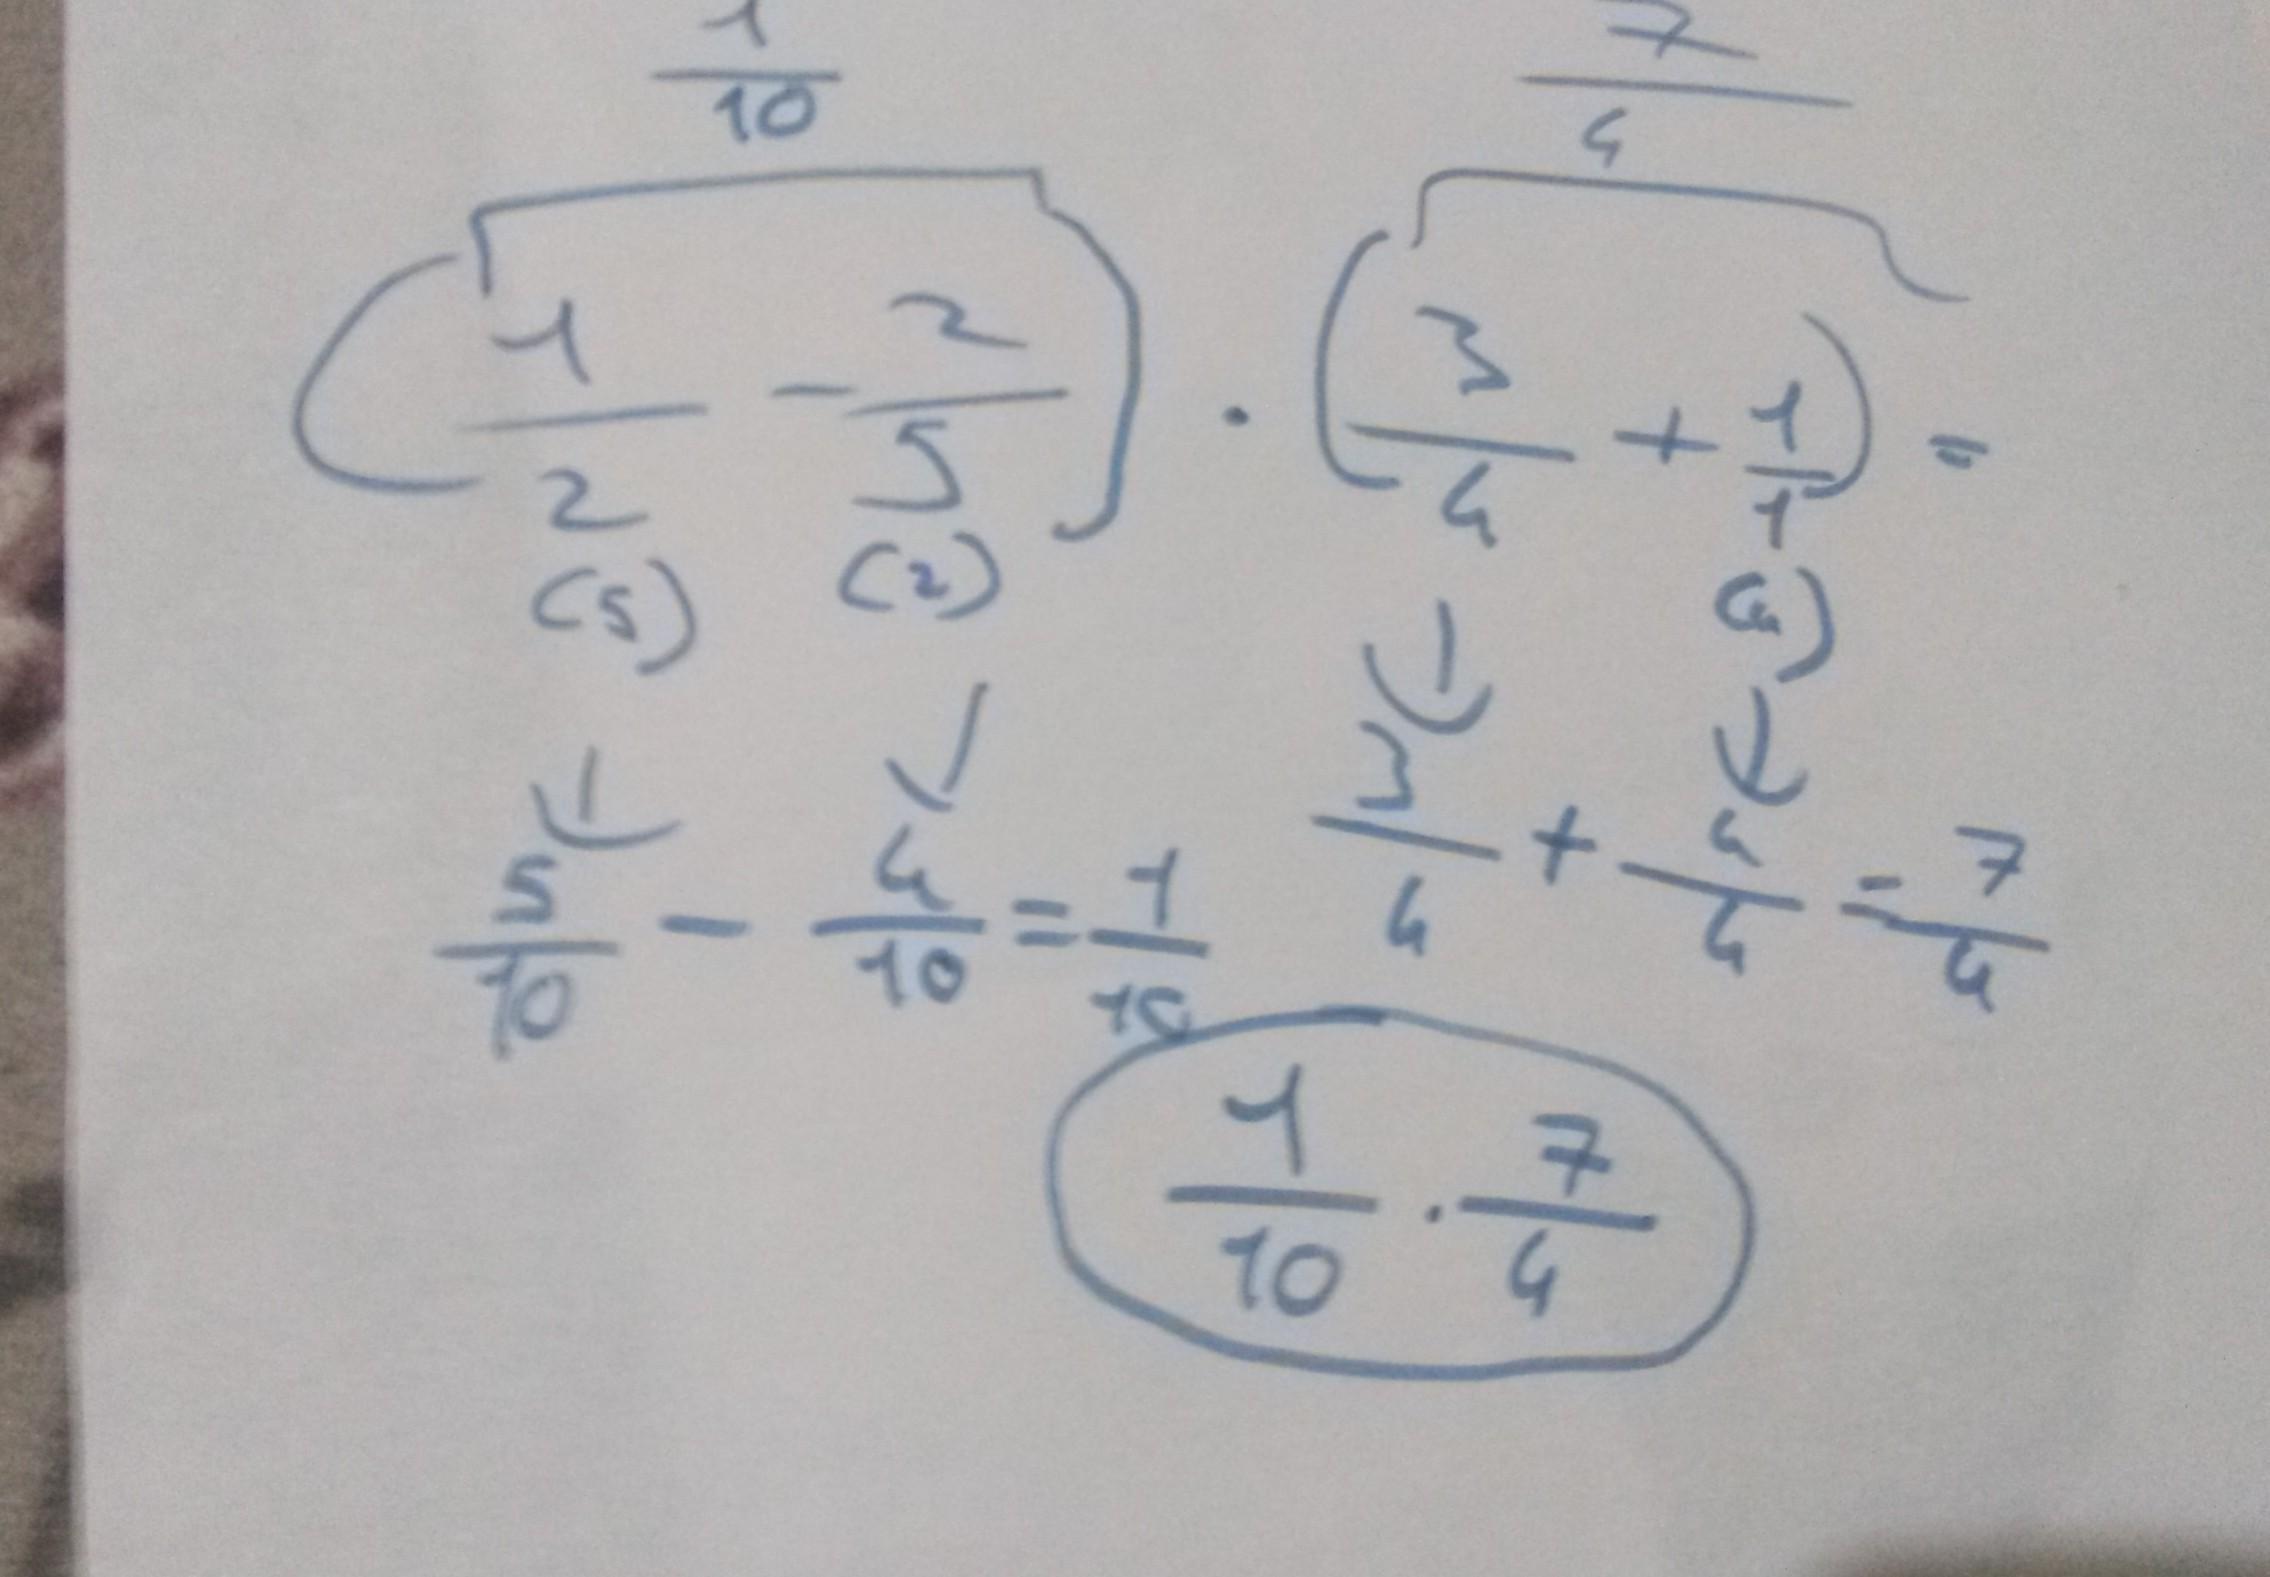 1/10 7/4
(1/2 - 2/5) · (3/4 + 1/1) =
(5) (2) (4)
5/10 - 4/10 = 1/10 3/4 + 4/4 = 7/4
1/10 · 7/4